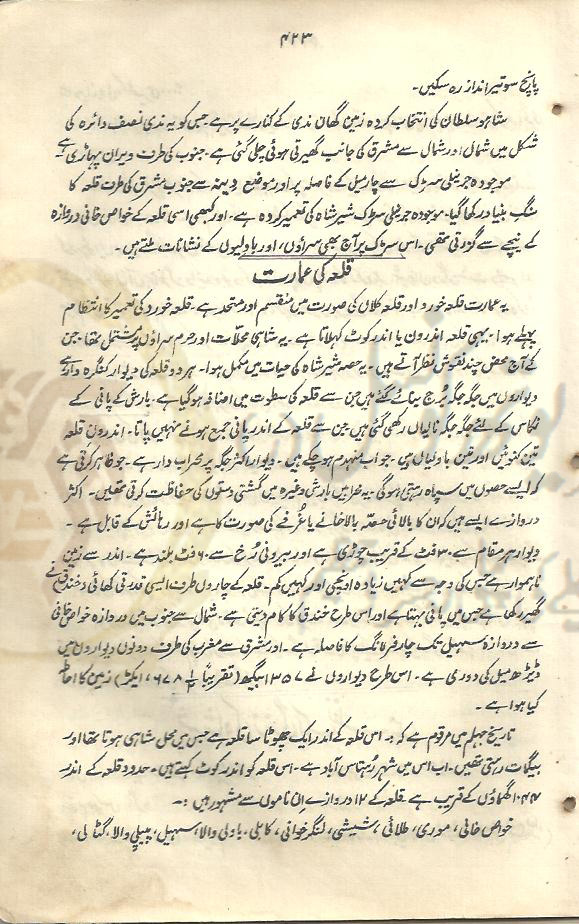 ۴۲۳
پانچ سو تیر انداز رہ سکیں۔
شاہو سلطان کی انتخاب کردہ زمین گھان ندی کے کنارے پر ہے۔ جس کو یہ ندی نصف دائرہ کی
شکل میں شمال اور شمال سے مشرق کی جانب گھیرتی ہوئی چلی گئی ہے۔ جنوب کی طرف ویران پہاڑی ہے
موجودہ جرنیلی سڑک سے چار میل کے فاصلہ پر اور موضع دینہ سے جنوب مشرق کی طرف قلعہ کا
سنگ بنیاد رکھا گیا۔ موجودہ جرنیلی سڑک شیر شاہ کی تعمیر کردہ ہے۔ اور کبھی اسی قلعہ کے خواص خانی دروازہ
کے نیچے سے گزرتی تھی۔ اس سڑک پر آج بھی سراؤں، اور باولیوں کے نشانات ملتے ہیں۔
قلعہ کی عمارت
یہ عمارت قلعہ خورد اور قلعہ کلاں کی صورت میں منقسم اور متحد ہے۔ قلعہ خورد کی تعمیر کا انتظام
پہلے ہوا۔ یہی قلعہ اندرون یا اندر کوٹ کہلاتا ہے۔ یہ شاہی محلات اور حرم سراؤں پر مشتمل تھا۔ جن
کے آج محض چند نقوش نظر آتے ہیں۔ یہ حصہ شیر شاہ کی حیات میں مکمل ہوا۔ ہر دو قلعہ کی دیوار کنگرہ دار ہے
دیواروں میں جگہ جگہ برج بنائے گئے ہیں جن سے قلعہ کی سطوت میں اضافہ ہو گیا ہے۔ بارش کے پانی کے
نکاس کے لئے جگہ جگہ نالیاں رکھی گئی ہیں جن سے قلعہ کے اندر پانی جمع ہونے نہیں پاتا۔ اندرون قلعہ
تین کنوئیں اور تین باولیاں ہیں۔ جو اب منہدم ہو چکے ہیں۔ دیوار اکثر جگہ پر محراب دار ہے۔ جو ظاہر کرتی ہے
کہ ایسے حصوں میں سپاہ رہتی ہو گی۔ یہ محرابیں بارش وغیرہ میں گشتی دستوں کی حفاظت کرتی تھیں۔ اکثر
دروازے ایسے ہیں کہ ان کا بالائی حصہ بالا خانے یا غرفے کی صورت کا ہے اور رہائش کے قابل ہے۔
دیوار ہر مقام سے ۳۰ فٹ کے قریب چوڑی ہے اور بیرونی رُخ سے ۶۰ فٹ بلند ہے۔ اندر سے زمین
ناہموار ہے جس کی وجہ سے کہیں زیادہ اونچی اور کہیں کم۔ قلعہ کے چاروں طرف ایسی قدرتی کھائی و خندق نے
گھیر رکھی ہے جس میں پانی بہتا ہے اور اس طرح خندق کا کام دیتی ہے۔ شمال سے جنوب میں دروازہ خواص خانی
سے دروازہ سہیل تک چار فرلانگ کا فاصلہ ہے۔ اور مشرق سے مغرب کی طرف دونوں دیواروں میں
ڈیڑھ میل کی دوری ہے۔ اس طرح دیواروں نے ۱۳۵۷ بیگھ (تقریباً ½ ۶۷۸، ایکڑ) زمین کا احاطہ
کیا ہوا ہے۔
تاریخ جہلم میں مرقوم ہے کہ:۔ اس قلعہ کے اندر ایک چھوٹا سا قلعہ ہے جس میں محل شاہی ہوتا تھا اور
بیگمات رہتی تھیں۔ اب اس میں شہر رہتاس آباد ہے۔ اس قلعہ کو اندر کوٹ کہتے ہیں۔ حدود قلعہ کے اندر
گھماؤں کے قریب ہے۔ قلعہ کے ۱۲ دروازے ان ناموں سے مشہور ہیں :۔
خواص خانی، موری، طلائی، شیشی، لنگر خوانی، کابلی، باولی والا، سہیل، پیپلی والا، گٹالی،